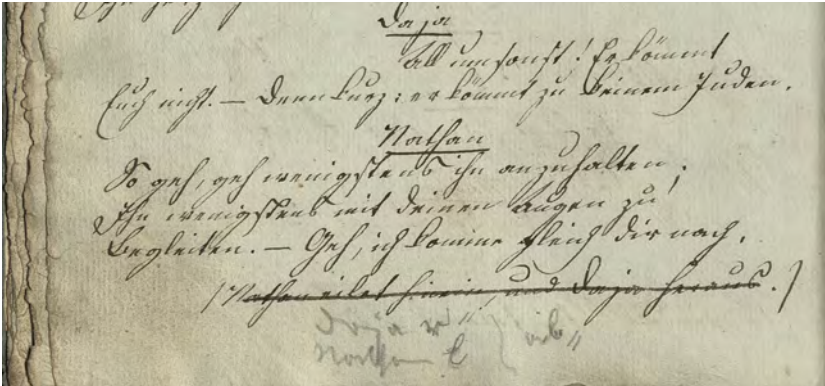 Daja
All umsonst! Er kömmt
Euch nicht. — Denn kurz: er kömmt zu keinem Juden.
Nathan
So geh, geh wenigstens ihn anzuhalten;
Ihn wenigstens mit deinen Augen zu
Begleiten. — Geh, ich komme gleich dir nach.
(Nathan eilet hinein, und Daja heraus.)
Daja r
Nathan l
ab